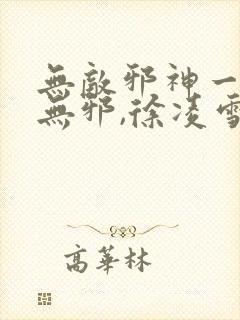 無敵邪神一
無邪,徐凌雪
高華林